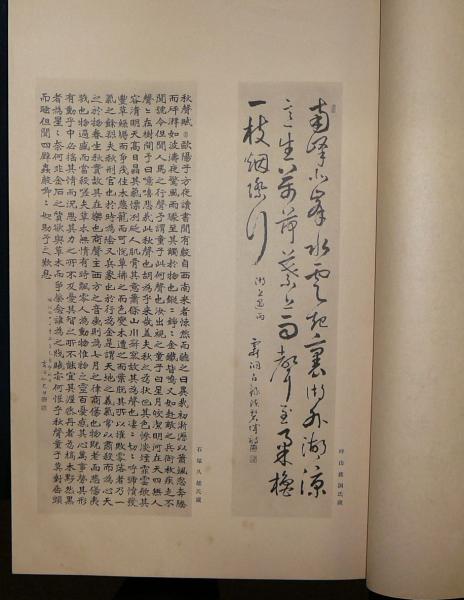 南峰北峯水雲起裏湖外湖涼
意生萬荷葉上雨聲至柔櫓
一枝烟際行
湖上遇雨
秋聲賦 歐陽子方夜讀書聞有聲自西南来者悚然而聽之曰異哉初淅瀝以蕭颯忽奔騰
而砰湃如波濤夜驚風雨驟至其觸於物也鏦〻錚〻金鐵皆鳴又如赴敵之兵銜枚疾走不
聞號令但聞人馬之行聲予謂童子此何聲也汝出視之童子曰星月皎潔明河在天四無人
聲〻在樹間予曰噫嘻悲哉此秋聲也胡為乎来哉蓋夫秋之為狀也其色慘淡煙霏雲斂其
容清明天高日晶其氣慄冽砭人肌骨其意蕭條山川寂寥故其為聲也淒〻切〻呼號憤發
豐草綠縟而爭茂佳木葱蘢而可悅草拂之而色變木遭之而葉脫其所以摧敗零落者乃一
氣之餘烈夫秋刑官也於時為陰又兵象也於行為金是謂天地之義氣常以肅殺而為心天
之於物春生秋實故其在樂也商聲主西方之音夷則為七月之律商傷也物既老而悲傷夷
戮也物過盛而當殺嗟夫草木無情有時飄零人為動物惟物之靈百憂感其心萬事勞其形
有動乎中必搖其情而況思其力之所不及憂其智之所不能宜其渥然丹者為槁木黟然黑
者為星〻奈何非金石之質欲與草木而爭榮念誰為之戕賊亦何恨乎秋聲童子莫對垂頭
而睡但聞四壁蟲聲唧〻如助予之歎息
石塚久雄氏藏